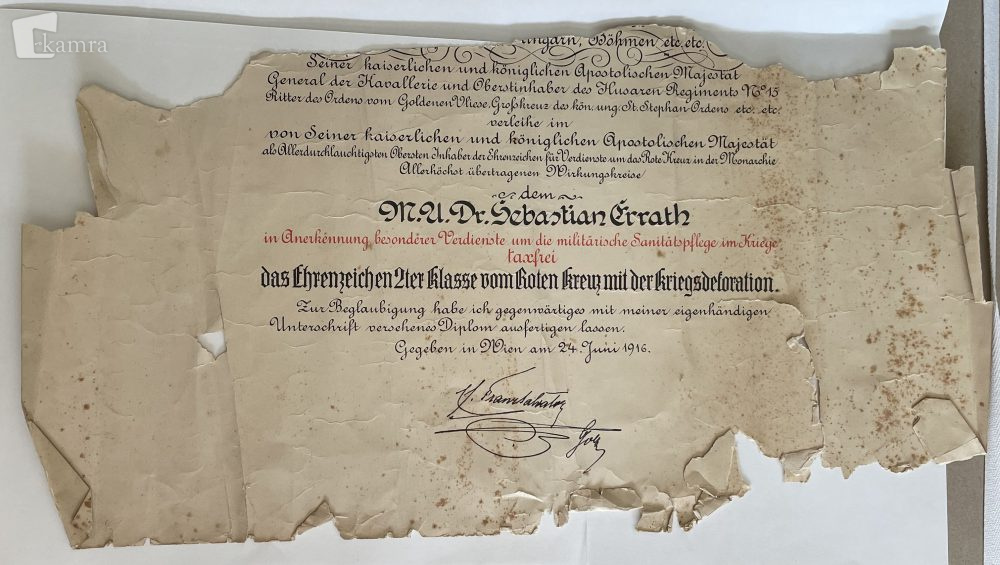 kamra
Ungarn, Böhmen etc. etc.
Seiner kaiserlichen und königlichen Apostolischen Majestät
General der Kavallerie und Oberstinhaber des Husaren Regiments No 15
Ritter des Ordens vom Goldenen Vliese, Großkreuz des kön. ung. St. Stephan-Ordens etc. etc.
verleihe im
von Seiner kaiserlichen und königlichen Apostolischen Majestät
als Allerdurchlauchtigsten Obersten Inhaber der Ehrenzeichen für Verdienste um das Rote Kreuz in der Monarchie
Allerhöchst übertragenen Wirkungskreise
dem
M.U.Dr. Sebastian Errath
in Anerkennung besonderer Verdienste um die militärische Sanitätspflege im Kriege
taxfrei
das Ehrenzeichen 2ter Klasse vom Roten Kreuz mit der Kriegsdekoration.
Zur Beglaubigung habe ich gegenwärtiges mit meiner eigenhändigen
Unterschrift versehenes Diplom ausfertigen lassen.
Gegeben in Wien am 24. Juni 1916.
Franz Salvator